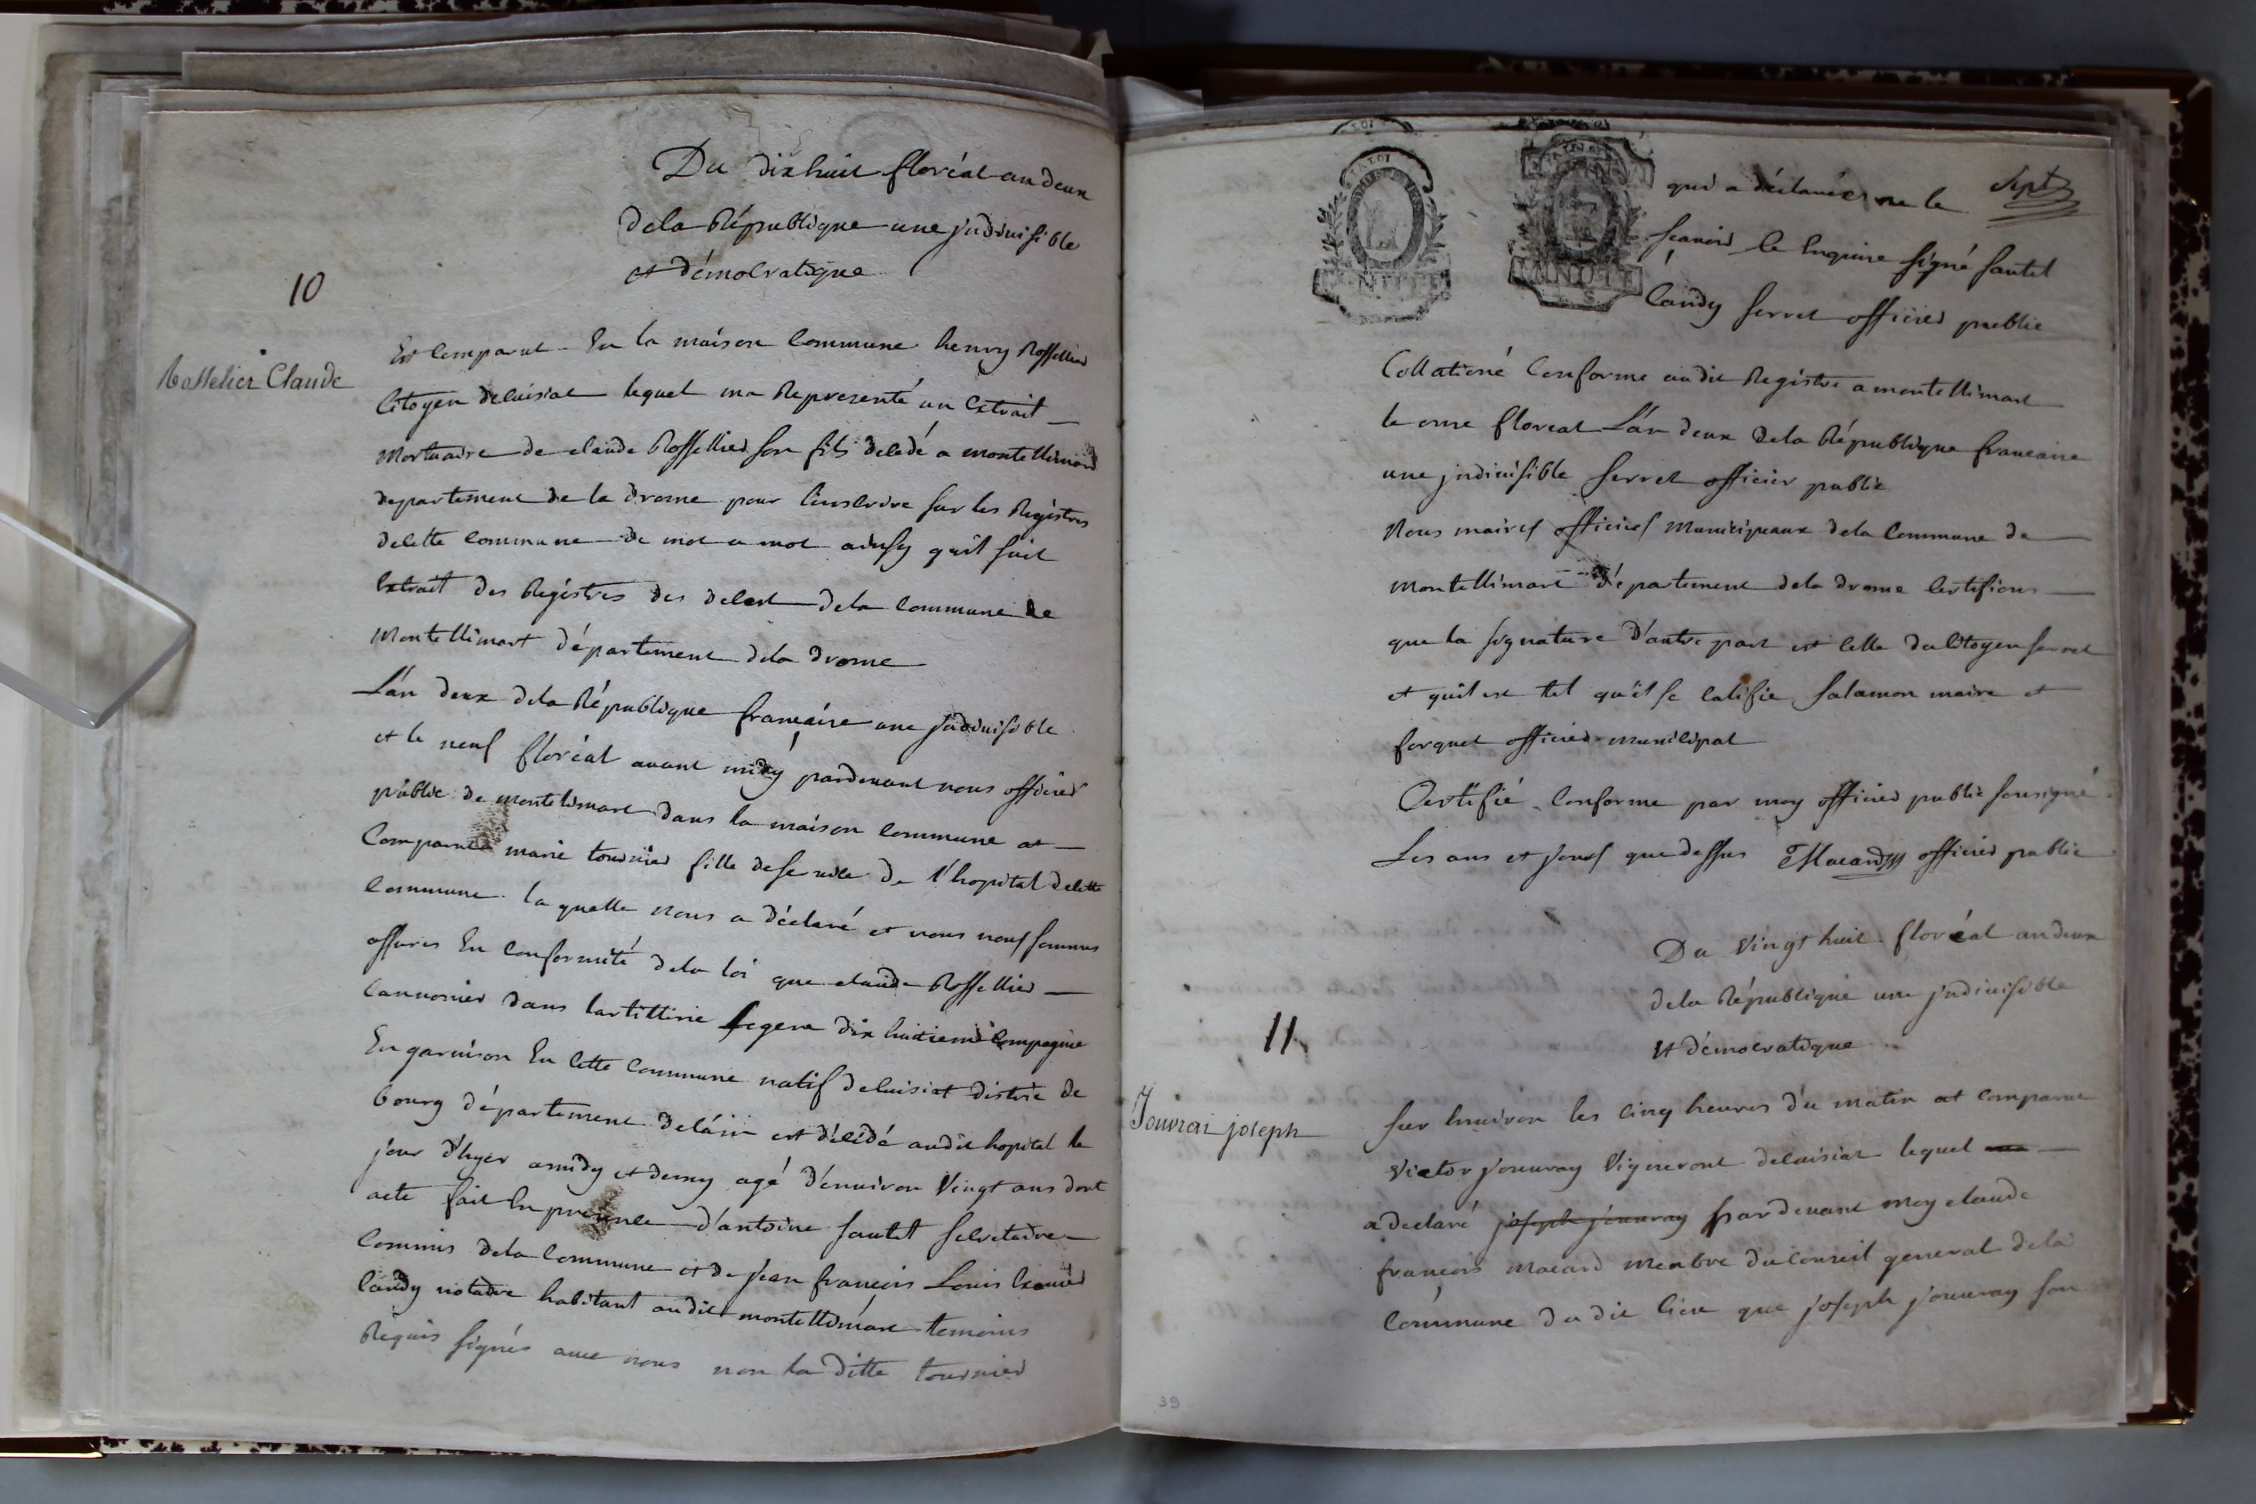 Du dix huit floréal an deux
dela République une jndiuisible
et démocratique
10
Rosselier Claude
Est Comparut En la maison Commune henry Rossellier
Citoyen decuisiat lequel ma Representé un Extrait
Mortuaire de claude Rossellier son fils decedé a montellimard
departement de la drome pour linscrire sur les Registres
decette commune de mot a mot ainsy quil suit
Extrait des Registres des deces dela commune de
Montellimart département dela drome
L'an deux dela République francaise une jndiuisible
et le neuf floréal auant midy pardeuant nous officier
public de montelimart dans la maison commune at
Comparue marie tournier fille deseruice de l'hopital decette
Commune laquelle nous a déclaré et nous nous sommes
assurés En conformité dela loi que claude Rossellier
Cannonier dans lartillirie legere dix huitieme Compagnie
En garnison En cette Commune natif decuisiat distric de
bourg département deláin est décédé audit hopital le
jour d'hyer amidy et demy agé d'énuiron Vingt ans dont
acte fait En presence d'antoine sautel secretaire
Commis dela Commune et de jean francois Louis Exauier
Candy notaire habitant audit montellimart temoins
Réquis signés auec nous non la ditte tournier
Sept
qui a déclaré ne le
scauoir le Enquise signé sautel
Candy serret officier public
Collationé Conforme audit Registre a montellimart
le onze floreal L'an deux dela République francaise
une jndiuisible serret officier public
Nous maires officiers Municipaux dela Commune de
Montellimart département dela drome Certifions
que la signature d'autre part est celle du Citoyen serret
et quil est tel qu'il se califie salamon maire et
forquet officier municipal
Certifié Conforme par moy officier public sousigné
Les ans et jours que dessus Macard officier public
Du Vingt huit floréal an deux
dela République une jndiuisible
et démocratique
11
Jouvrai joseph
sur Enuiron les cinq heures du matin at comparu
Victor jouuray Vigneront decuisiat lequel
a declaré joseph jouuray pardeuant moy claude
francois Macard membre du conseil general dela
Commune du dit lieu que joseph jouuray son
39